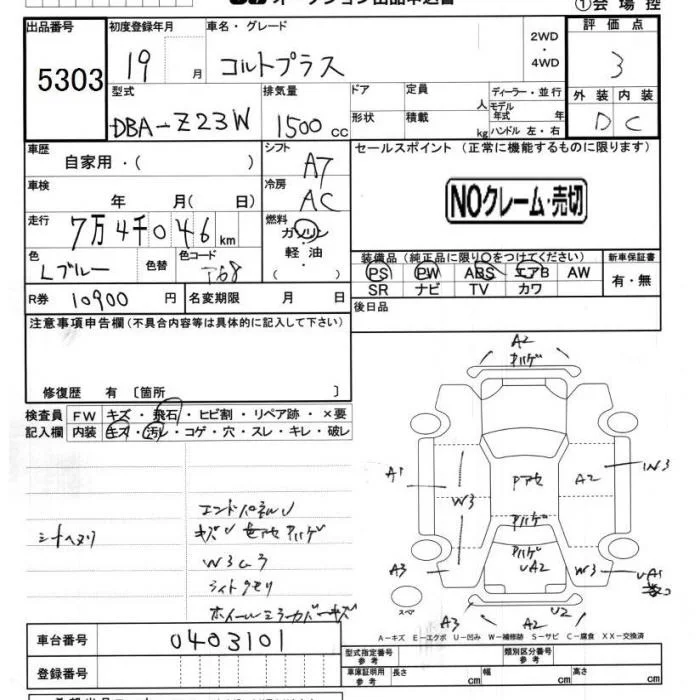 オークション出品申込書
①会場控
出品番号
5303
初度登録年月
19 月
車名・グレード
コルトプラス
2WD
・
4WD
評価点
3
型式
DBA-Z23W
排気量
1500 cc
ドア
形状
定員 人
積載 kg
ディーラー・並行
モデル年式 年
ハンドル 左・右
外装 内装
D C
車歴
自家用・( )
シフト
A7
セールスポイント (正常に機能するものに限ります)
NOクレーム・売切
車検
年 月( 日)
冷房
AC
走行
7万4千046 km
燃料
ガソリン
軽・油
( )
色
Lブルー
色替
色コード
T68
装備品 (純正品に限り○をつけてください)
PS PW ABS エアB AW
SR ナビ TV カワ
新車保証書
有・無
R券
10900 円
名変期限 月 日
後日品
注意事項申告欄 (不具合内容等は具体的に記入して下さい)
修復歴 有 〔箇所 〕
検査員
記入欄
FW キズ・飛石・ヒビ割・リペア跡・×要
内装 キズ・汚レ・コゲ・穴・スレ・キレ・破レ
エンドパネルU
W3ムラ
ライトクモリ
ホイールミラーカバーキズ
A2
ハゲ
A1
W3
Pアセ
A2
W3
ハゲ
ハゲ
UA2
A3
W3
UA1
スペア
A3
U2
A-キズ E-エクボ U-凹み W-補修跡 S-サビ C-腐食 XX-交換済
車台番号
0403101
登録番号
型式指定番号
参考
類別区分番号
参考
車庫証明用
参考
長さ cm
幅 cm
高さ cm